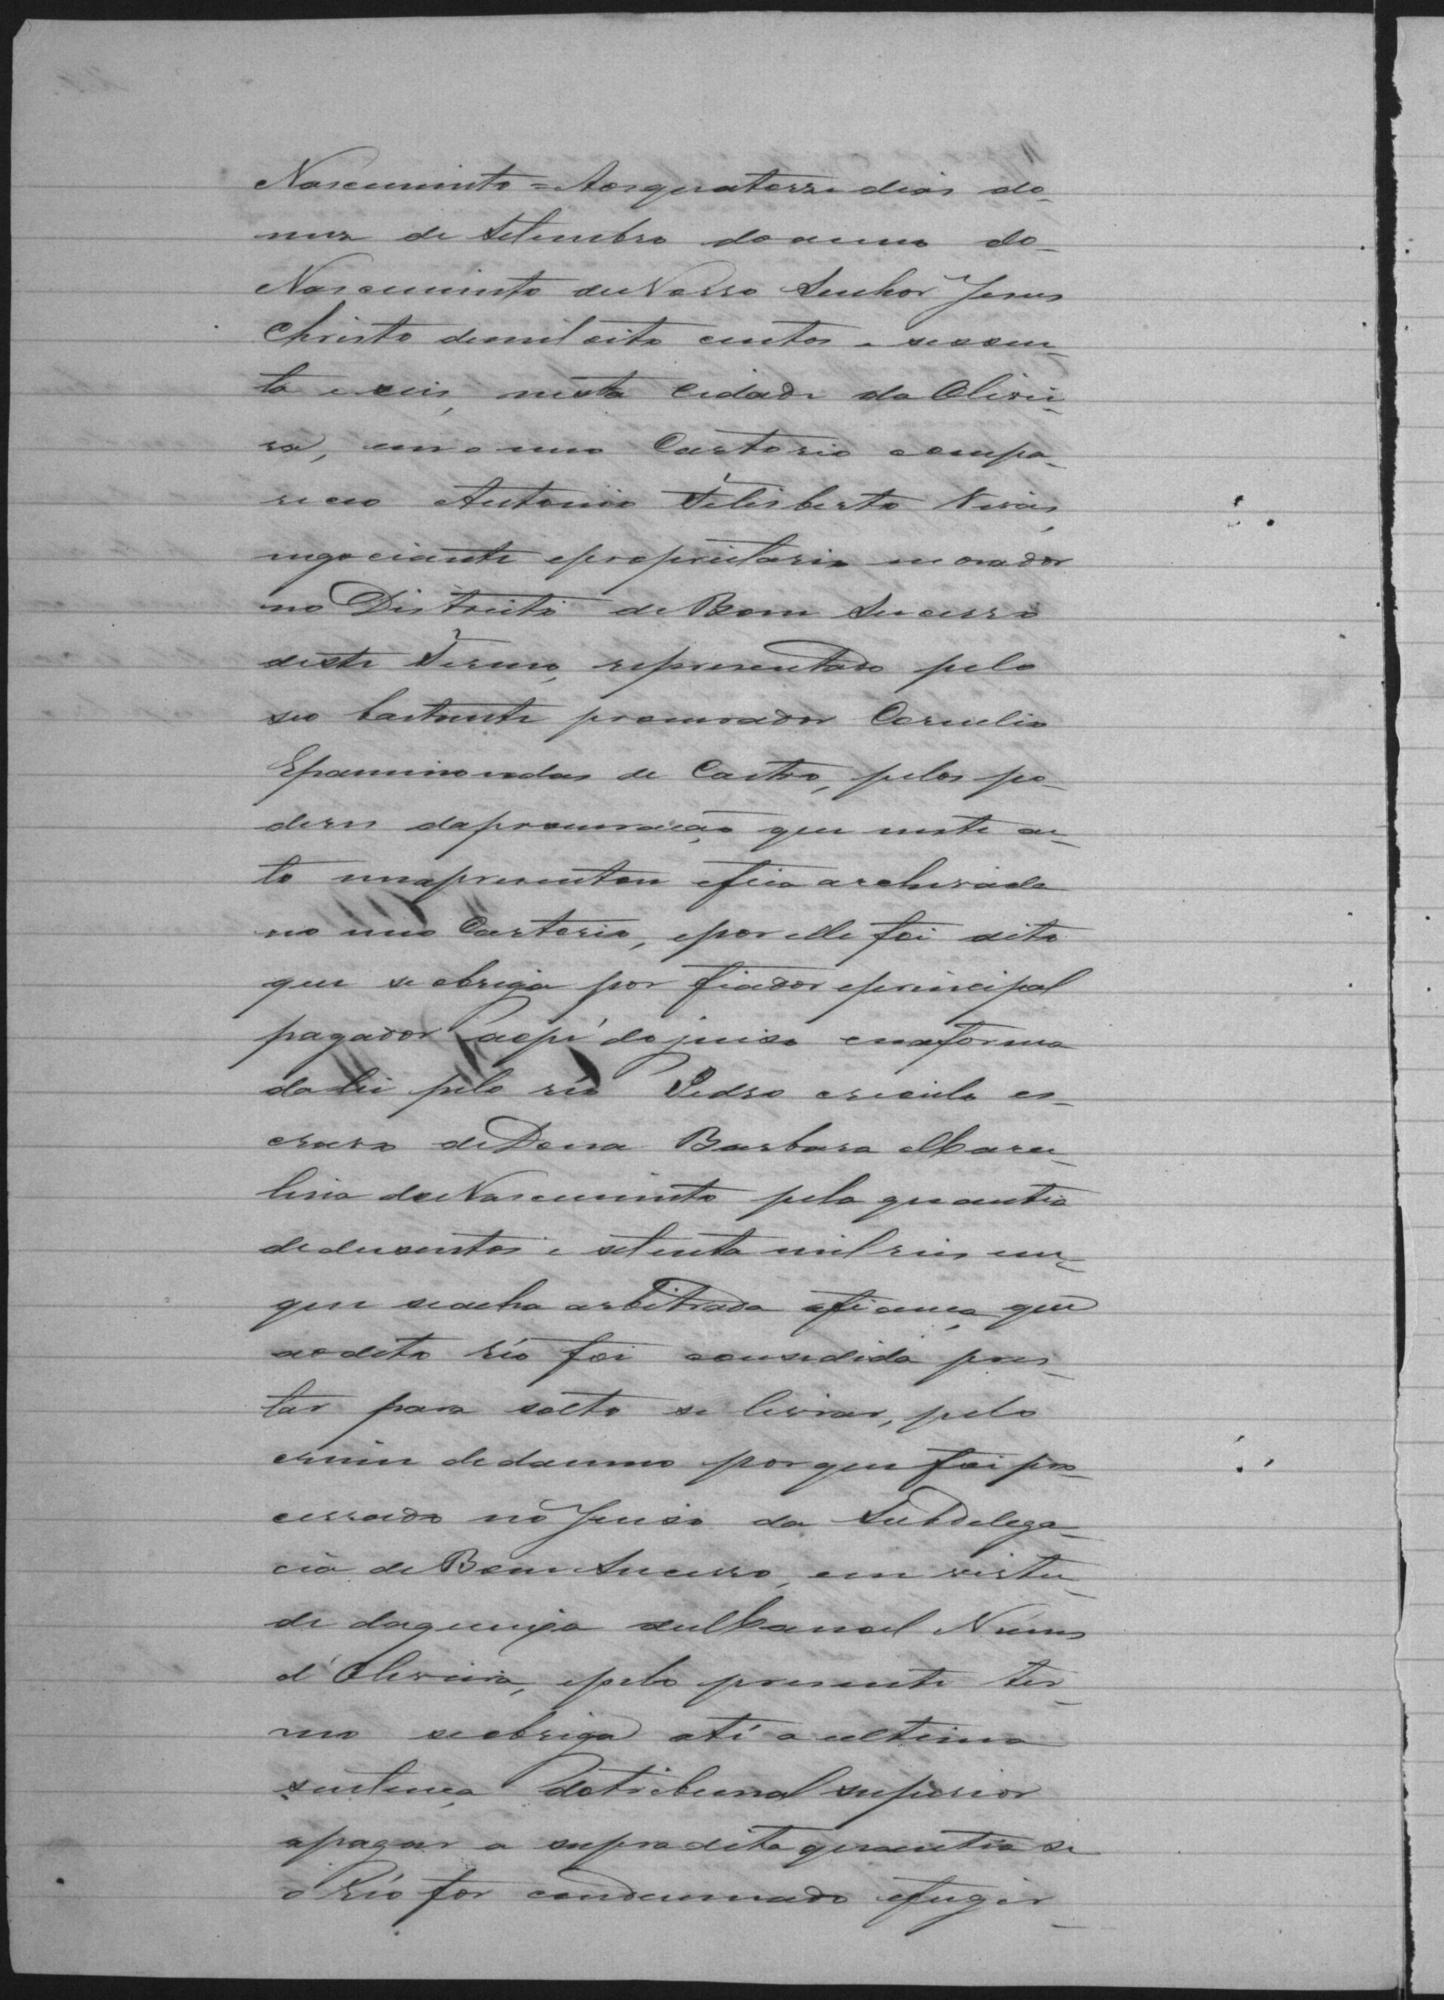 Nascimento = Aos quatorse dias do
mez de Setembro do anno do
Nascimento de Nosso Senhor Jesus
Christo de mil oito centos e sessen-
ta e seis, nesta Cidade da Olivei-
ra, em o meu Cartorio compa-
receo Antonio Felisberto Neves,
negociante e proprietario morador
no Districto de Bom Sucesso
deste Termo, representado pelo
seo bastante procurador Cornelio
Epaminondas de Castro, pelos po-
deres da procuração que neste ac-
to me apresentou e fica archivada
no meo Cartorio, e por elle foi dito
que se obriga por fiador e principal
pagador ao pé do juiso e na forma
da lei pelo réo Pedro creoulo es-
cravo de Dona Barbara Marce-
lina do Nascimento pela quantia
de dusentos e setenta mil reis em
que se acha arbitrada a fiança que
ao dito Réo foi consedida pres-
tar para solto se livrar, pelo
crime de damno por que foi pro-
cessado no Juiso da Subdelega-
cia de Bom Sucesso, em virtu-
de da queixa de Manoel Nunes
d'Oliveira, e pelo presente ter-
mo se obriga até a ultima
sentença do tribunal superior
a pagar a supradita quantia se
o Réo for condemnado e fugir